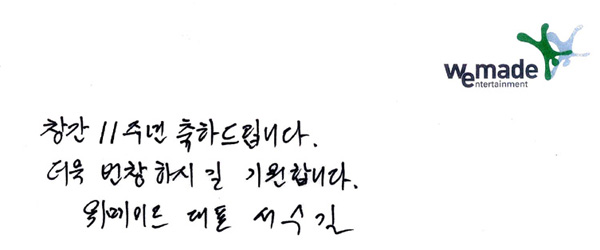 wemade
entertainment
창간 11주년 축하드립니다.
더욱 번창하시길 기원합니다.
위메이드 대표 서수길